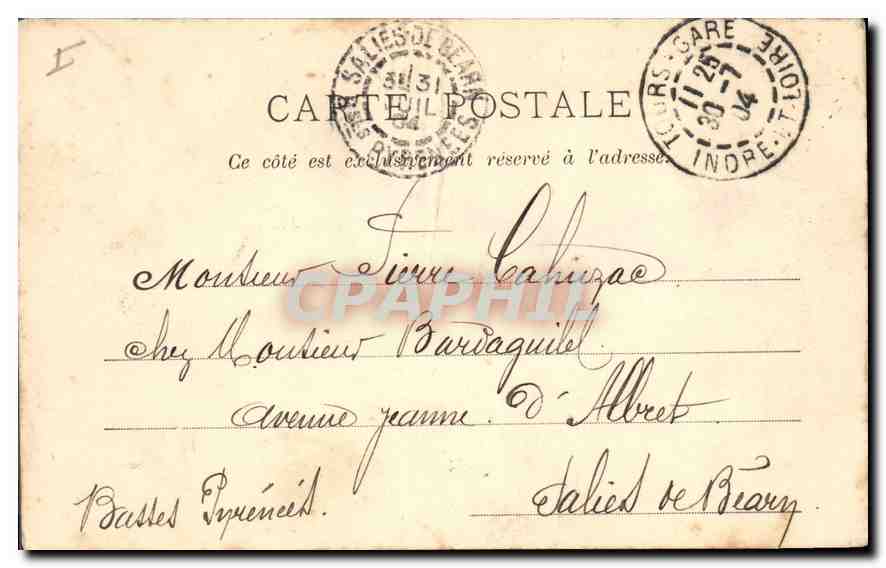 SALIES-DE-BÉARN
31 JUIL 04
BSES PYRENEES
TOURS-GARE
11 25
30 -7
04
INDRE-ET-LOIRE
CARTE POSTALE
Ce côté est exclusivement réservé à l'adresse.
Monsieur Pierre Cahuzac
CPAPHIL
chez Monsieur Bardaquibel.
avenue Jeanne. D'Albret
Salies de Béarn
Basses Pyrénées.